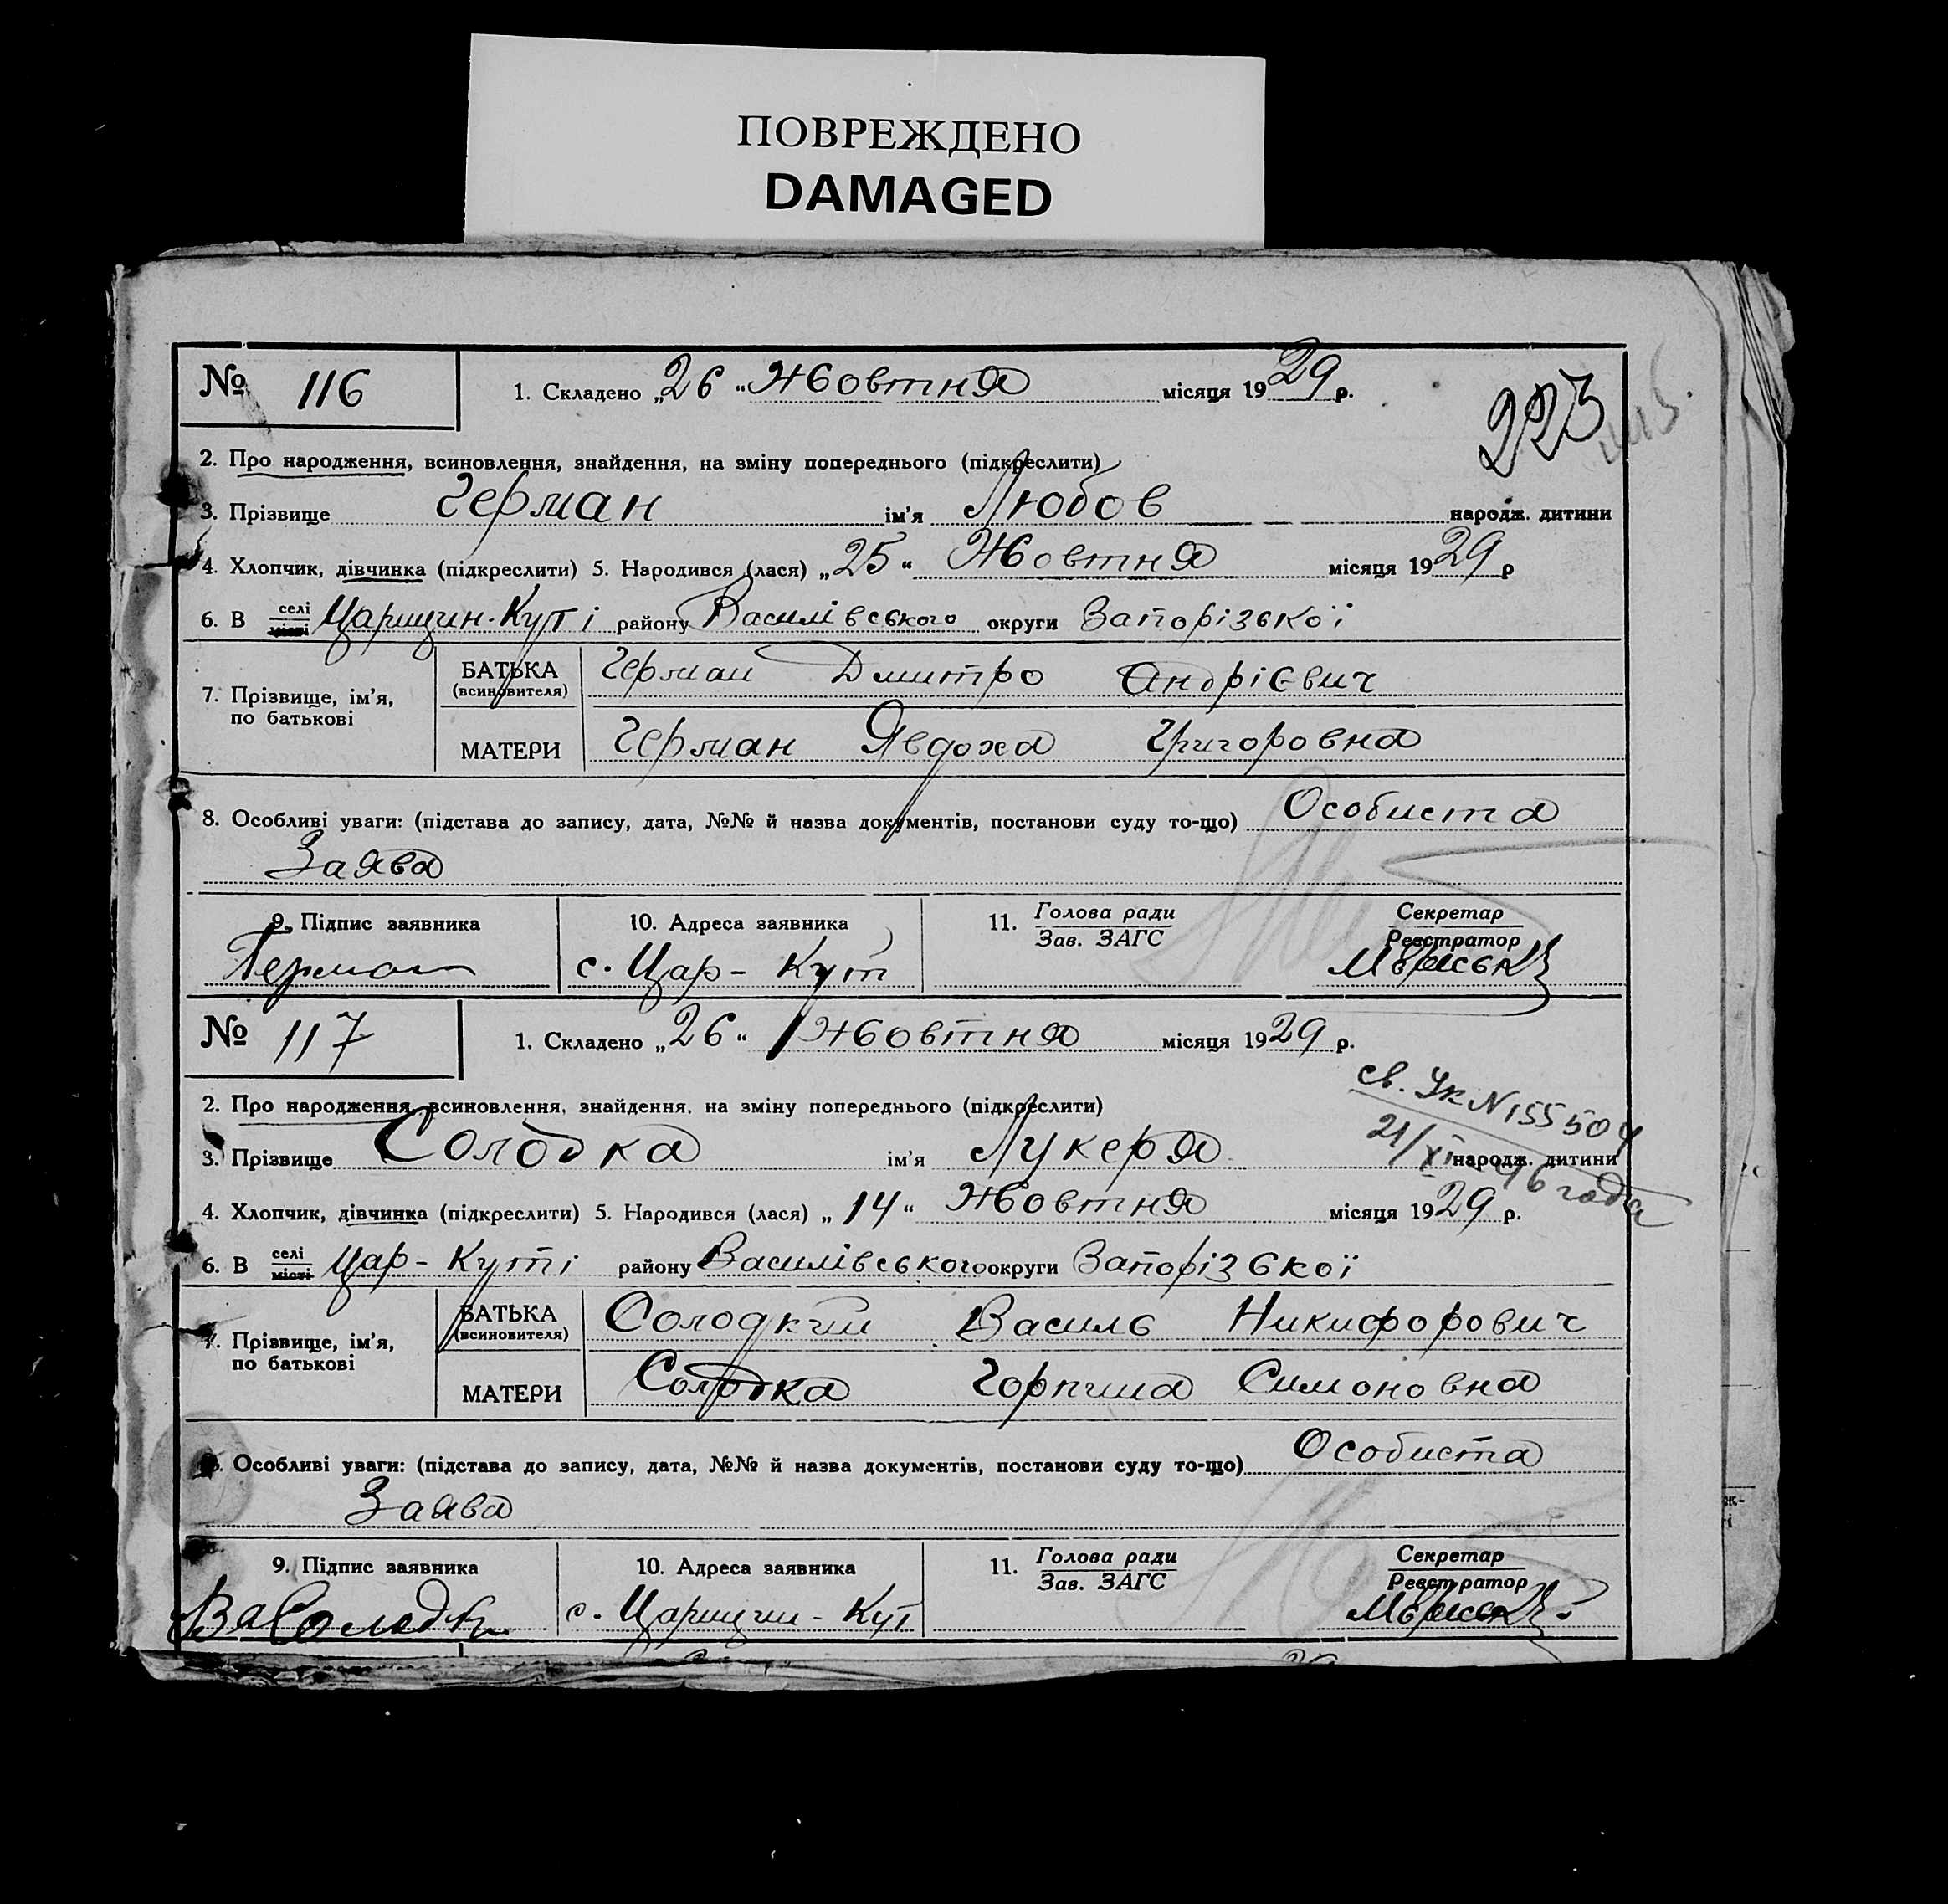 ПОВРЕЖДЕНО
DAMAGED
№ 116 1. Складено „26“ Жовтня місяця 1929 р.
223
2. Про народження, всиновлення, знайдення, на зміну попереднього (підкреслити)
3. Прізвище Герман ім'я Любов народж. дитини
4. Хлопчик, дівчинка (підкреслити) 5. Народився (лася) „25“ Жовтня місяця 1929 р
6. В селі місті Царицин-Куті району Василівського округи Запорізької
7. Прізвище, ім'я, по батькові
БАТЬКА (всиновителя) Герман Дмитро Андрієвич
МАТЕРИ Герман Явдоха Григоровна
8. Особливі уваги: (підстава до запису, дата, №№ й назва документів, постанови суду то-що) Особиста
Заява
9. Підпис заявника 10. Адреса заявника 11. Голова ради Зав. ЗАГС Секретар Реєстратор
Герман с. Цар-Кут
№ 117 1. Складено „26“ Жовтня місяця 1929 р.
св. Ук N 155504
21/XI-46 года
2. Про народження, всиновлення, знайдення, на зміну попереднього (підкреслити)
3. Прізвище Солодка ім'я Лукеря народж. дитини
4. Хлопчик, дівчинка (підкреслити) 5. Народився (лася) „14“ Жовтня місяця 1929 р.
6. В селі місті Цар-Куті району Василівського округи Запорізької
7. Прізвище, ім'я, по батькові
БАТЬКА (всиновителя) Солодкий Василь Никифорович
МАТЕРИ Солодка Горпина Симоновна
8. Особливі уваги: (підстава до запису, дата, №№ й назва документів, постанови суду то-що) Особиста
Заява
9. Підпис заявника 10. Адреса заявника 11. Голова ради Зав. ЗАГС Секретар Реєстратор
с. Царицин-Кут